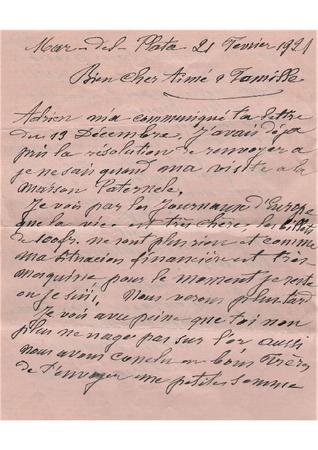 Mar-del-Plata 21 Fevrier 1921
Bien cher Aimé & Famille
Adrien m'a communiqué ta lettre
du 19 Décembre, J'avais déja
pris la résolution de renvoyer a
je ne sais quand ma visite a la
maison Paternele.
Je vois par les Journaux d'Europe
que la vie est très chère, les billets
de 100fr. ne sont plus rien et comme
ma situacion financière est très
mesquine pour le moment je reste
ou je suis, Nous verons plus tard
Je vois avec peine que toi non
plus ne nage pas sur l'or aussi
nous avons conclu en bons Frères
de t'envoyer une petite somme